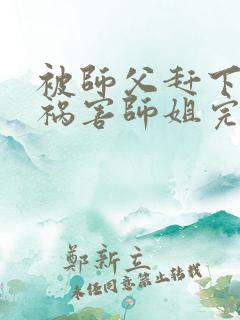 被師父赶下
祸害師姐完
鄭新立
未经同意禁止转载